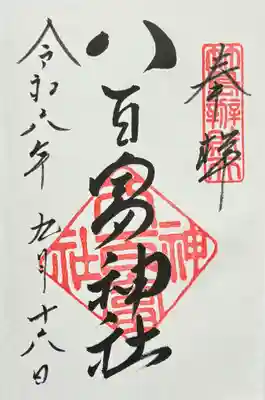 奉拝
八百富神社
令和八年
九月十六日
神
社